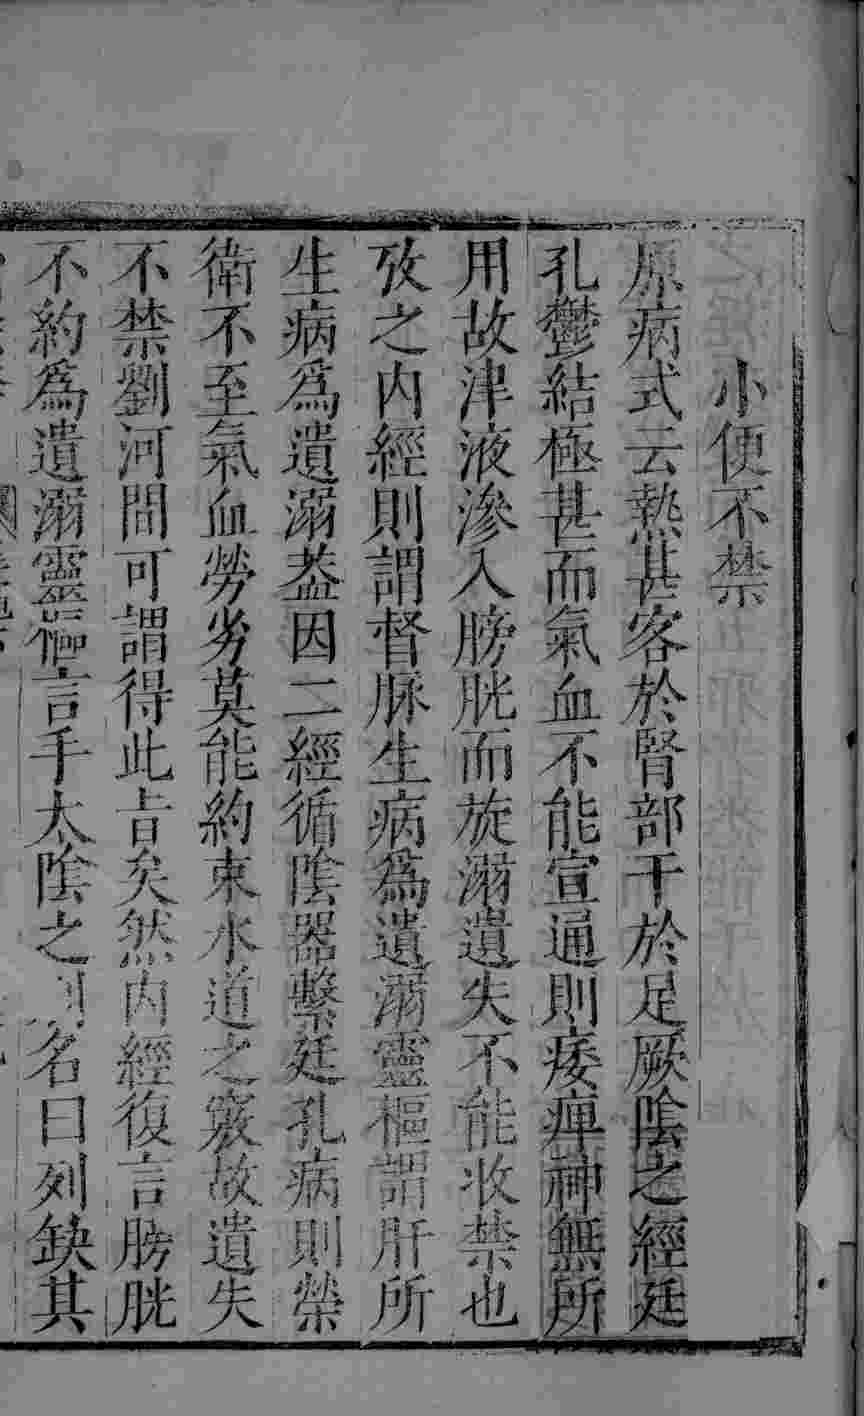 小便不禁
原病式云熱甚客於腎部干於足厥陰之經廷
孔鬱結極甚而氣血不能宣通則痿痺神無所
用故津液滲入膀胱而旋溺遺失不能收禁也
攷之內經則謂督脉生病爲遺溺靈樞謂肝所
生病爲遺溺葢因二經循陰器繫廷孔病則榮
衛不至氣血勞劣莫能約束水道之竅故遺失
不禁劉河間可謂得此旨矣然內經復言膀胱
不約爲遺溺靈樞言手太陰之別名曰列缺其